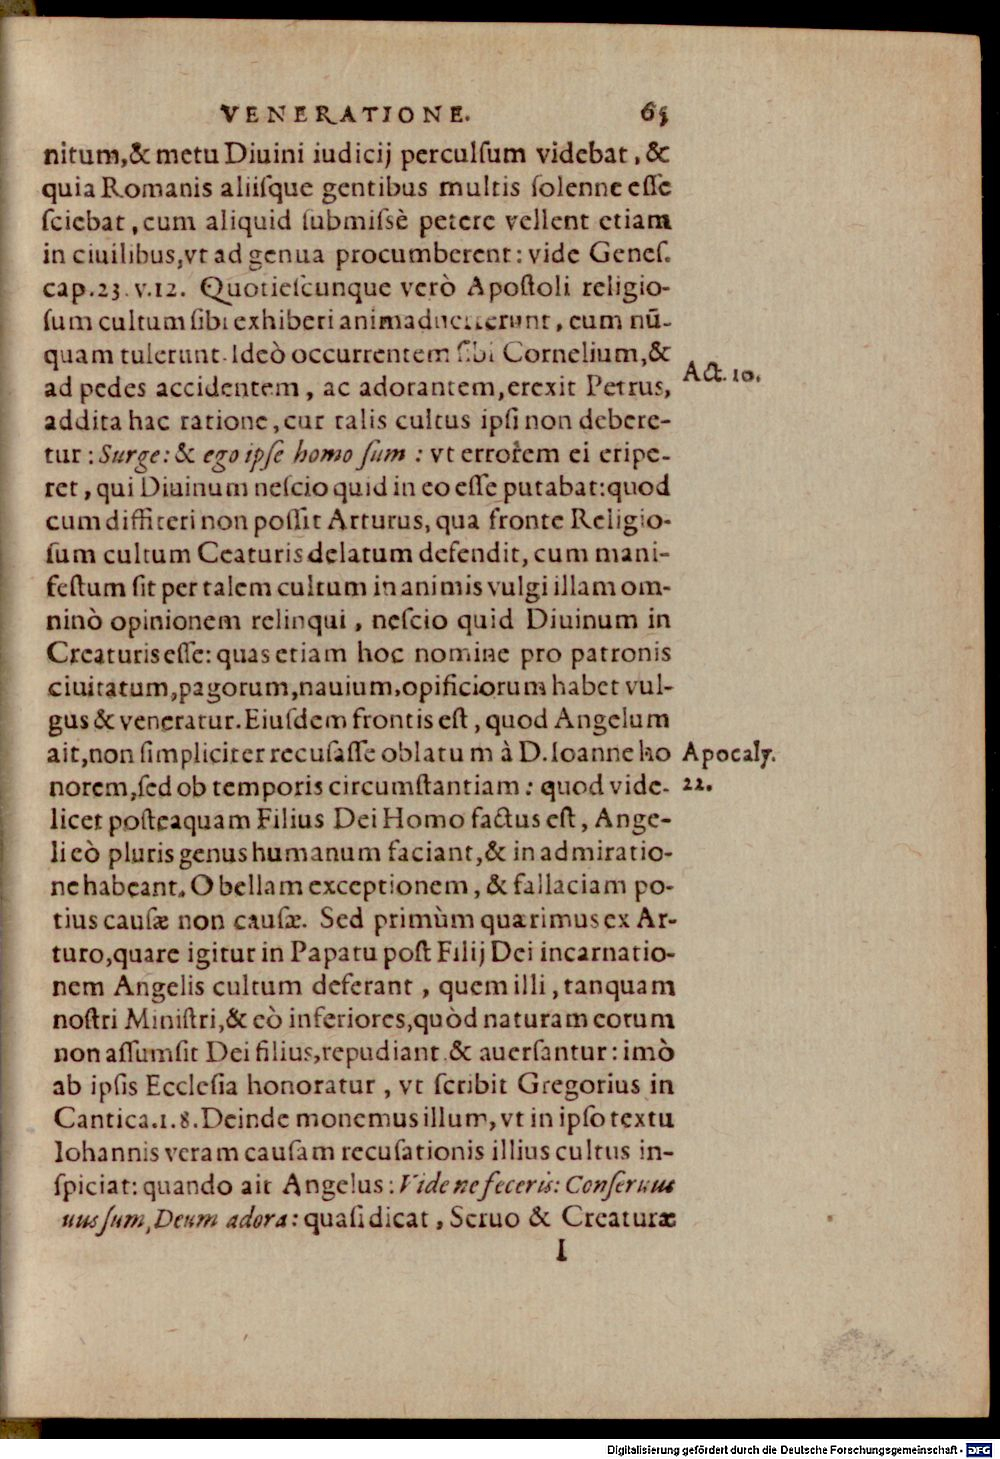 VENERATIONE. 65
nitum,& metu Diuini iudicij perculſum videbat, &
quia Romanis aliiſque gentibus multis ſolenne eſſe
ſciebat, cum aliquid ſubmiſsè petere vellent etiam
in ciuilibus, vt ad genua procumberent: vide Geneſ.
cap.23. v.12. Quotieſcunque verò Apoſtoli religio-
ſum cultum ſibi exhiberi animaduerterunt, eum nū-
quam tulerunt. Ideò occurrentem ſibi Cornelium,&
ad pedes accidentem, ac adorantem, erexit Petrus,
Act. 10.
addita hac ratione, cur talis cultus ipſi non debere-
tur: Surge: & ego ipſe homo ſum: vt errorem ei eripe-
ret, qui Diuinum neſcio quid in eo eſſe putabat: quod
cum diffiteri non poſſit Arturus, qua fronte Religio-
ſum cultum Ceaturis delatum defendit, cum mani-
feſtum ſit per talem cultum in animis vulgi illam om-
ninò opinionem relinqui, neſcio quid Diuinum in
Creaturis eſſe: quas etiam hoc nomine pro patronis
ciuitatum, pagorum, nauium, opificiorum habet vul-
gus & veneratur. Eiuſdem frontis eſt, quod Angelum
ait, non ſimpliciter recuſaſſe oblatum à D. Ioanne ho
Apocaly.
norem, ſed ob temporis circumſtantiam: quod vide-
22.
licet poſteaquam Filius Dei Homo factus eſt, Ange-
li eò pluris genus humanum faciant,& in admiratio-
ne habeant. O bellam exceptionem, & fallaciam po-
tius cauſæ non cauſæ. Sed primùm quærimus ex Ar-
turo, quare igitur in Papatu poſt Filij Dei incarnatio-
nem Angelis cultum deferant, quem illi, tanquam
noſtri Miniſtri,& eò inferiores, quòd naturam eorum
non aſſumſit Dei filius, repudiant & auerſantur: imò
ab ipſis Eccleſia honoratur, vt ſcribit Gregorius in
Cantica.1.8. Deinde monemus illum, vt in ipſo textu
Iohannis veram cauſam recuſationis illius cultus in-
ſpiciat: quando ait Angelus: Vide ne feceris: Conſeruus
uus ſum, Deum adora: quaſi dicat, Seruo & Creaturæ
I
Digitalisierung gefördert durch die Deutsche Forschungsgemeinschaft - DFG